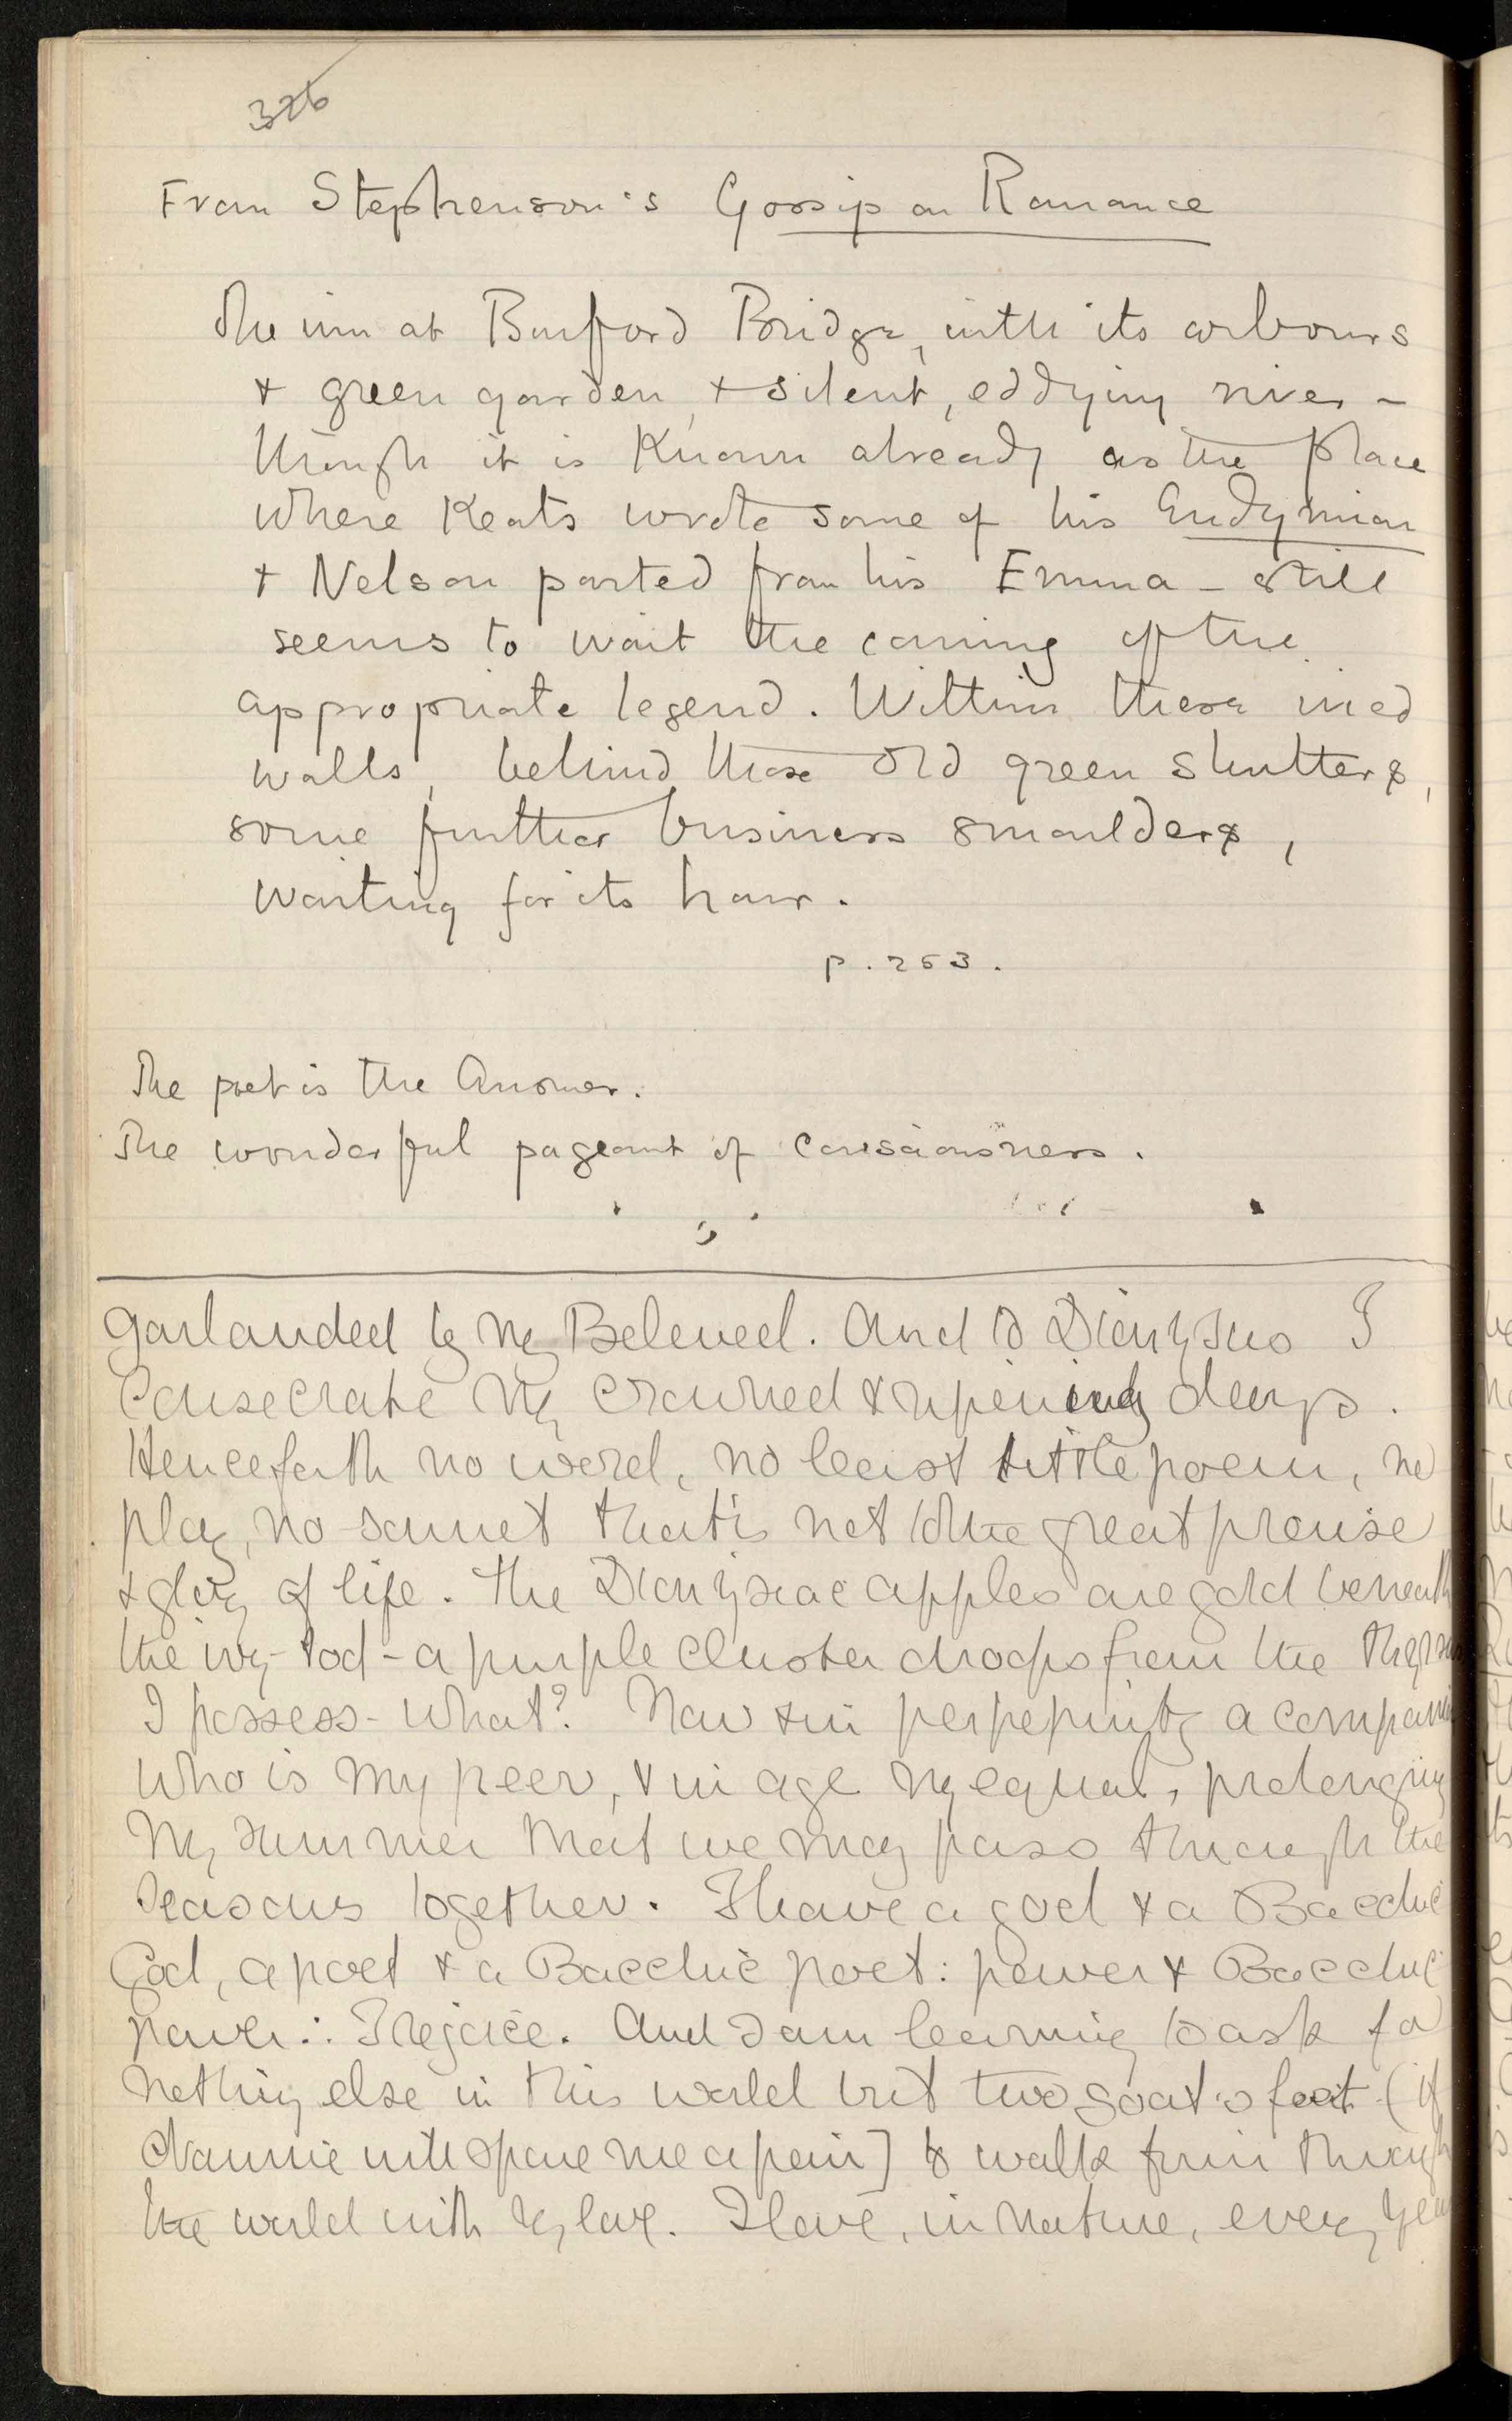 326
From Stephenson's Gossip on Romance
The inn at Burford Bridge, with its arbours
+ green garden, + silent, eddying river -
though it is known already as the place
where Keats wrote some of his Endymion
+ Nelson parted from his Emma - still
seems to wait the coming of the
appropriate legend. Within these ivied
walls, behind those old green shutters,
some further business smoulders,
waiting for its hour.
p. 253.
The poet is the Answer.
The wonderful pageant of consciousness.
garlanded by my Beloved. And to Dionysus I
consecrate my crowned & ripening days.
Henceforth no word, no least little poem, no
play, no sonnet that is not to the great praise
& glory of life. The Dionysiac apples are gold beneath
the ivy-tod - a purple cluster drops from the
I possess - what? Now & in a
who is my peer, & in age my equal, prolonging
my summer that we may pass through the
seasons together. I have a god & a Bacchic
God, a poet & a Bacchic poet: power & Bacchic
power ∴ I rejoice. And I am learning to ask for
nothing else in this world but two goat's feet (if
will spare me a pair] to walk through
the world with my love. I love, in nature, every